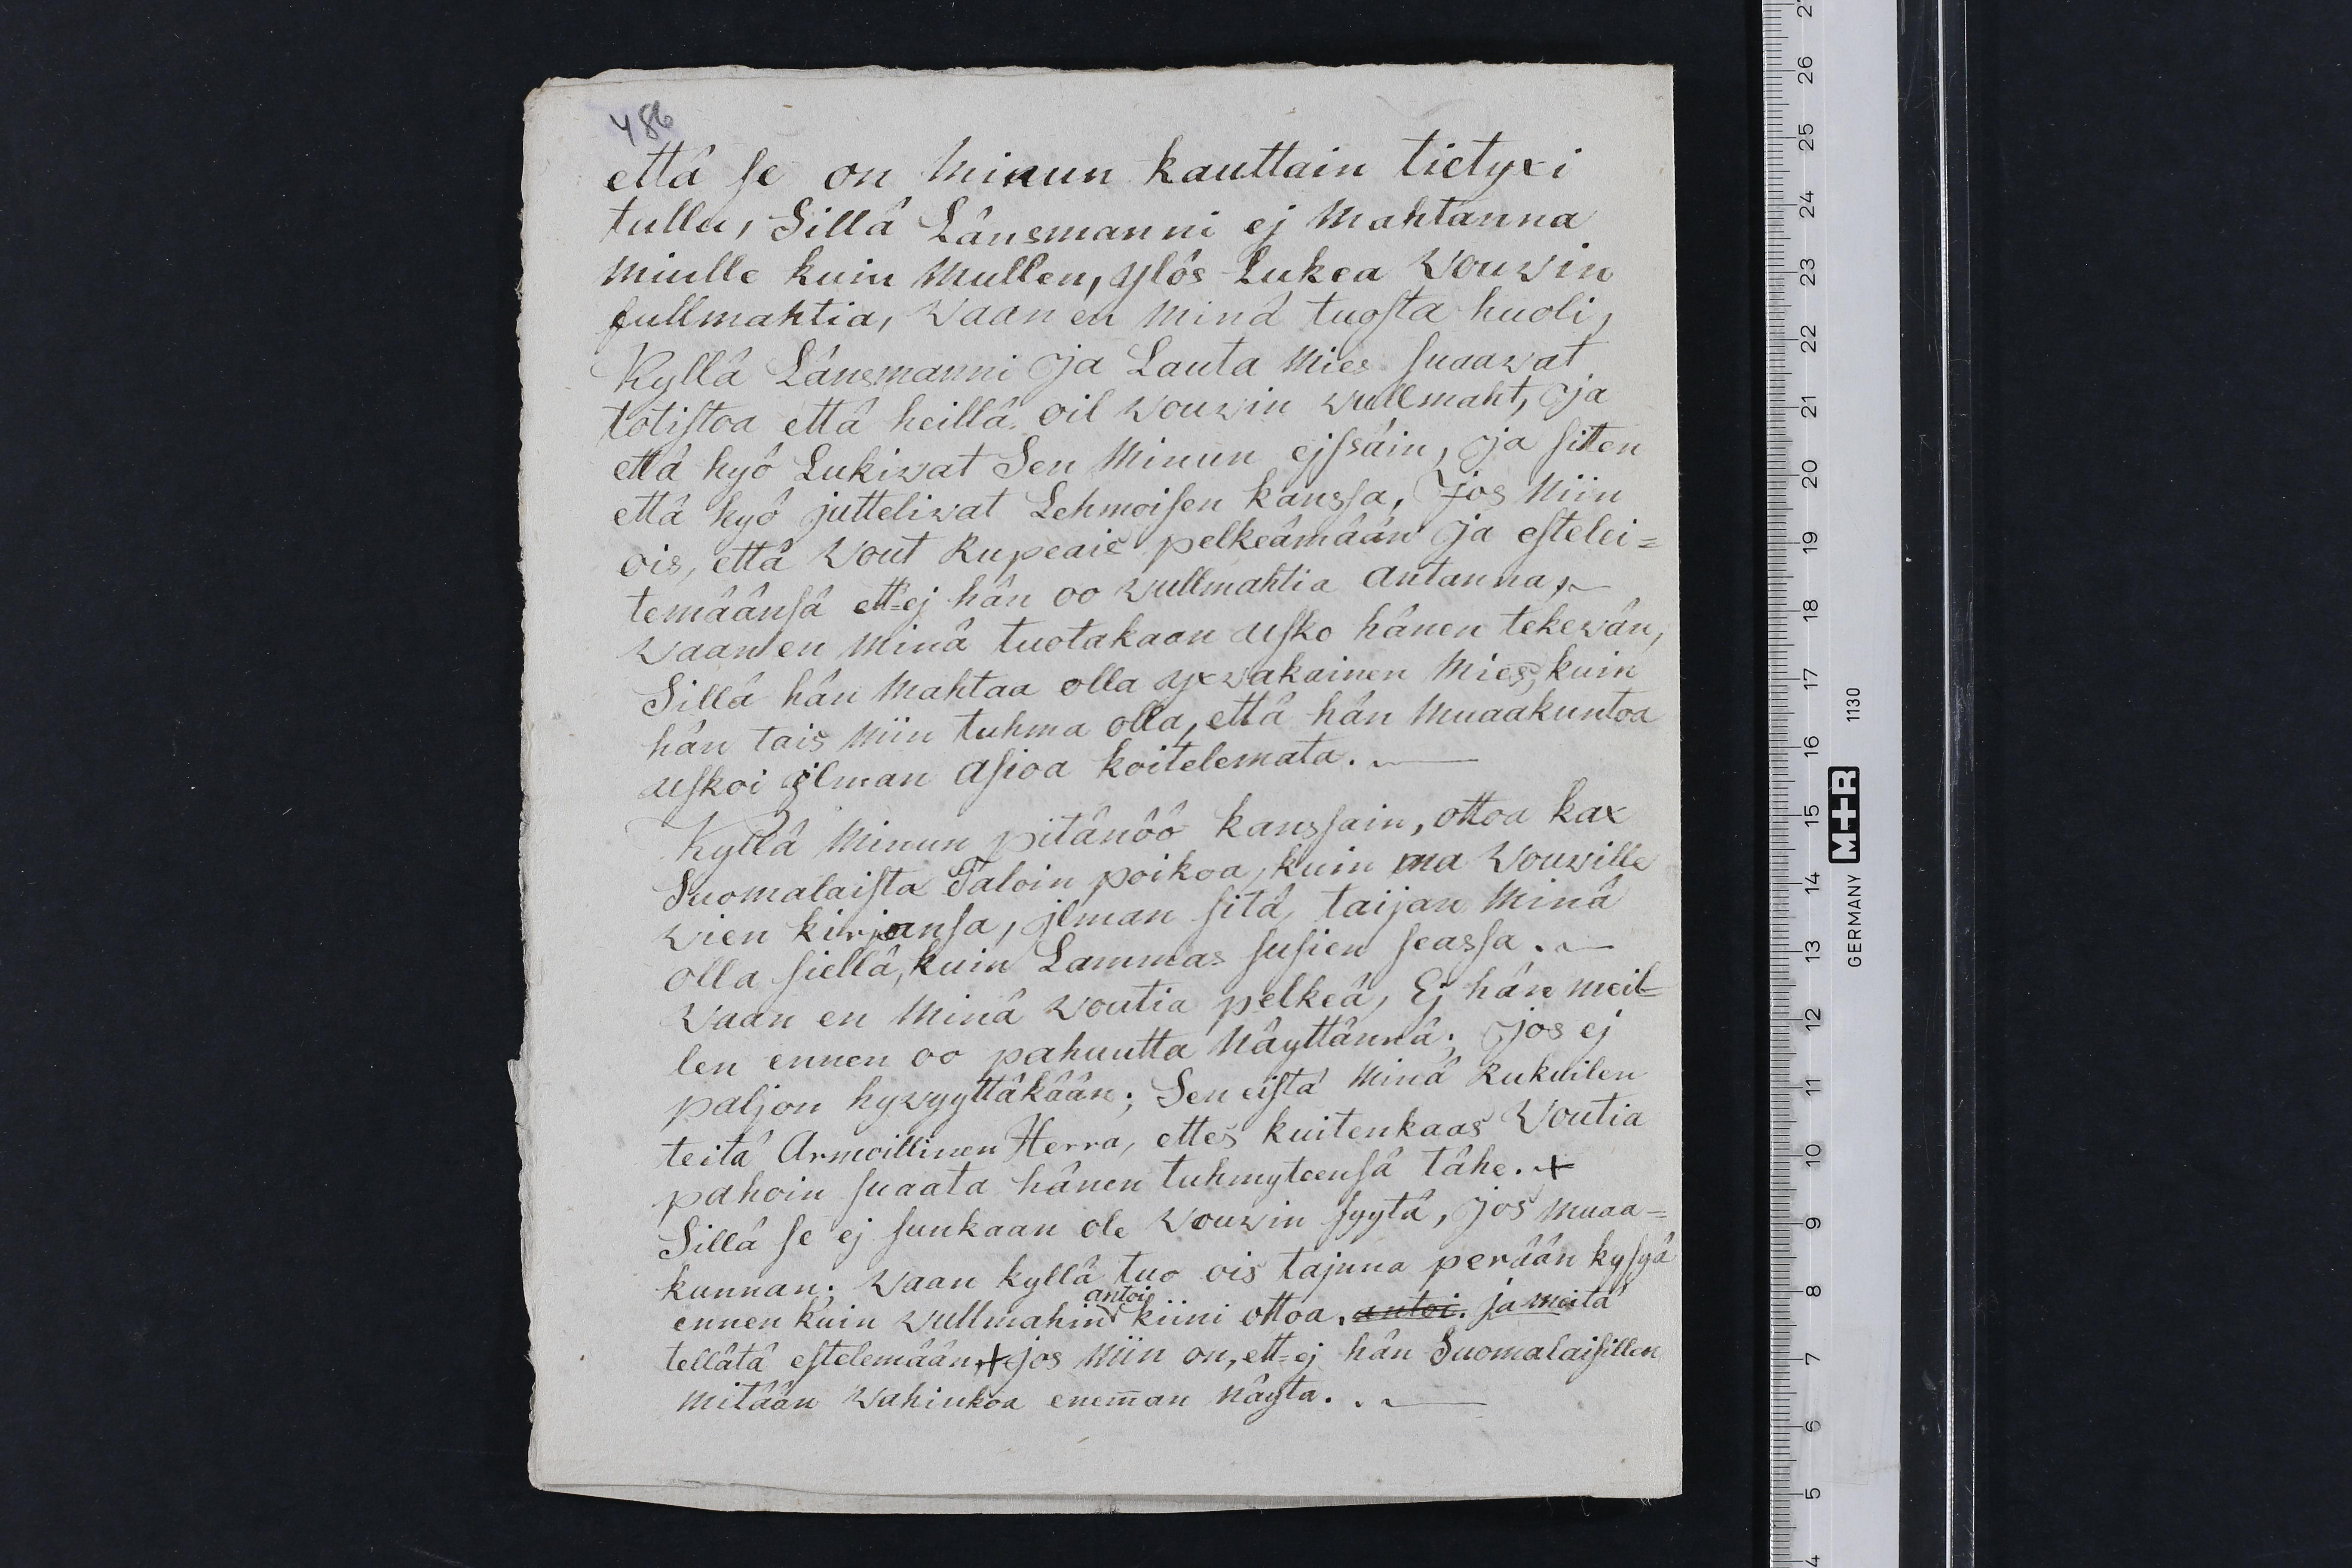 486
että se on Minun kauttain tietyxi
tullu, Sillä Länsmanni ej Mahtanna
Miulle kuin Mullen, ylös Lukea Vouvin
fullmahtia, Vaan en Minä tuosta huoli,
Kyllä Länsmanni Ja Lauta Mies suaavat
totistoa että heillä oil Vouvin vullmaht, Ja
että hyö Lukivat Sen Minun ejssäin, Ja sitten
että hyö juttelivat Lehmoisen kanssa, Jos Niin
ois, että Vout Rupeais pelkeämään Ja estelei=
temäänsä ett=ej hän oo vullmahtia antanna,
Vaan en Minä tuotakaan usko hänen tekevän,
Sillä hän Mahtaa olla yxvakainen Mies, kuin
hän tais Niin tuhma olla, että hän Muaakuntoa
uskoi ilman asioa koitelemata.
Kyllä Minun pitänöö kanssain, ottoa kax
Suomalaista Taloin poikoa, kuin ma Vouville
vien kirjansa, jlman sitä, taijan Minä
olla siellä, kuin Lammas susien seassa.
Vaan en Minä Voutia pelkeä, Ej hän meil=
len ennen oo pahuutta Näyttännä; Jos ej
paljon hyvyyttäkään; Sen eistä Minä Rukuilen
teitä Armoillinen Herra, ettes kuitenkaas Voutia
pahoin suaata hänen tuhmyteensä tähe. +
Sillä se ej sunkaan ole Vouvin syytä, Jos Muaa=
kunnan; Vaan kyllä tuo ois tajnna perään kysyä
antoi
ennen kuin vullmahin kiini ottoa. antoi. ja meitä
tellätä estelemään + Jos Niin on, ett=ej hän Suomalaisillen
Mitään Vahinkoa enem̄an näytä.
27
26
25
24
23
22
21
20
19
18
17
16
15
14
13
12
11
10
9
8
7
6
5
4
GERMANY M+R 1130